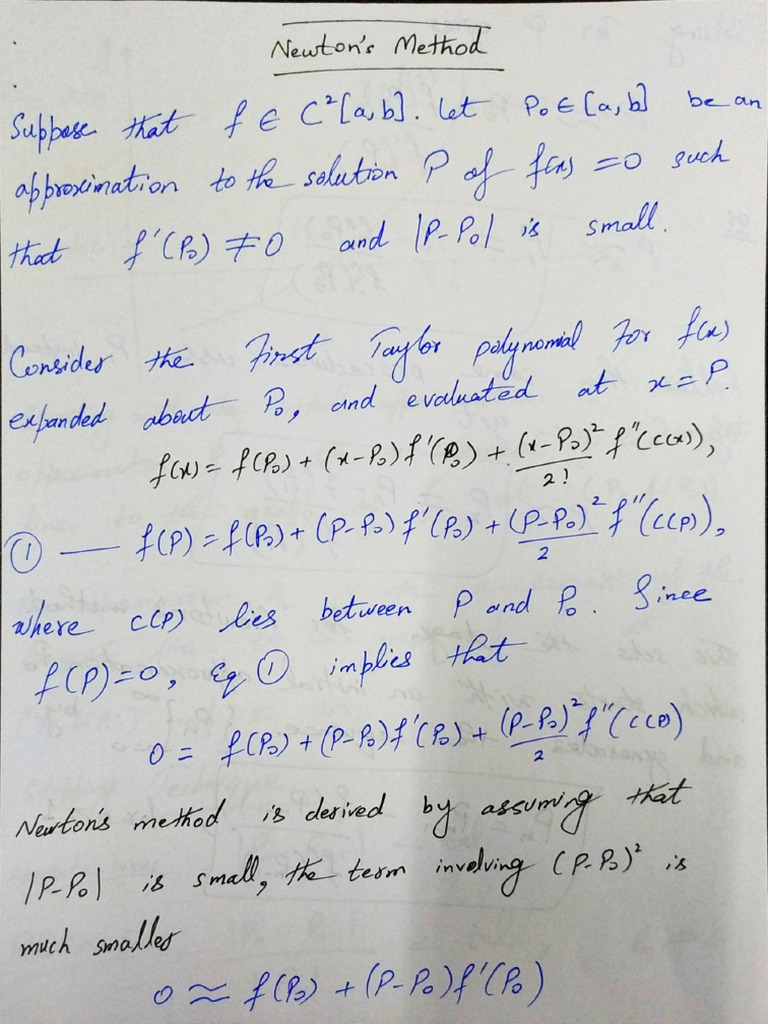 Newton's Method
Suppose that f ∈ C²[a,b]. Let P₀ ∈ [a,b] be an
approximation to the solution P of f(x) = 0 such
that f'(P₀) ≠ 0 and |P-P₀| is small.
Consider the First Taylor polynomial for f(x)
expanded about P₀, and evaluated at x = P.
f(x) = f(P₀) + (x-P₀) f'(P₀) + (x-P₀)²/2! f''(c(x)),
① — f(P) = f(P₀) + (P-P₀) f'(P₀) + (P-P₀)²/2 f''(c(P)),
where c(P) lies between P and P₀. Since
f(P)=0, Eq ① implies that
0 = f(P₀) + (P-P₀) f'(P₀) + (P-P₀)²/2 f''(c(P))
Newton's method is derived by assuming that
|P-P₀| is small, the term involving (P-P₀)² is
much smaller
0 ≈ f(P₀) + (P-P₀) f'(P₀)